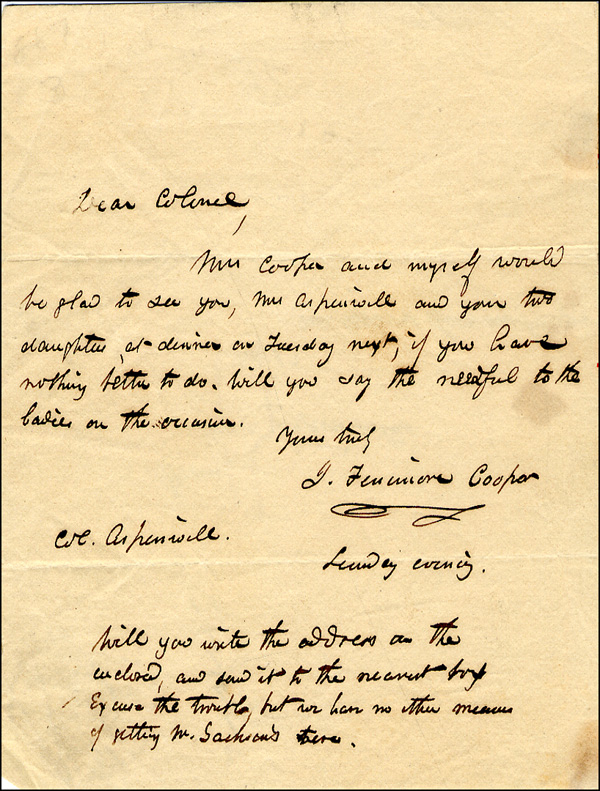 Dear Colonel,
Mrs Cooper and myself would
be glad to see you, Mrs Aspinwall and your two
daughters, at dinner on Tuesday next, if you have
nothing better to do. Will you say the needful to the
ladies on the occasion.
Yours truly
J. Fenimore Cooper
Col. Aspinwall.
Sunday evening.
Will you write the address on the
enclosed, and send it to the nearest box
Excuse the trouble, but we have no other means
of getting Mr. Jackson's here.